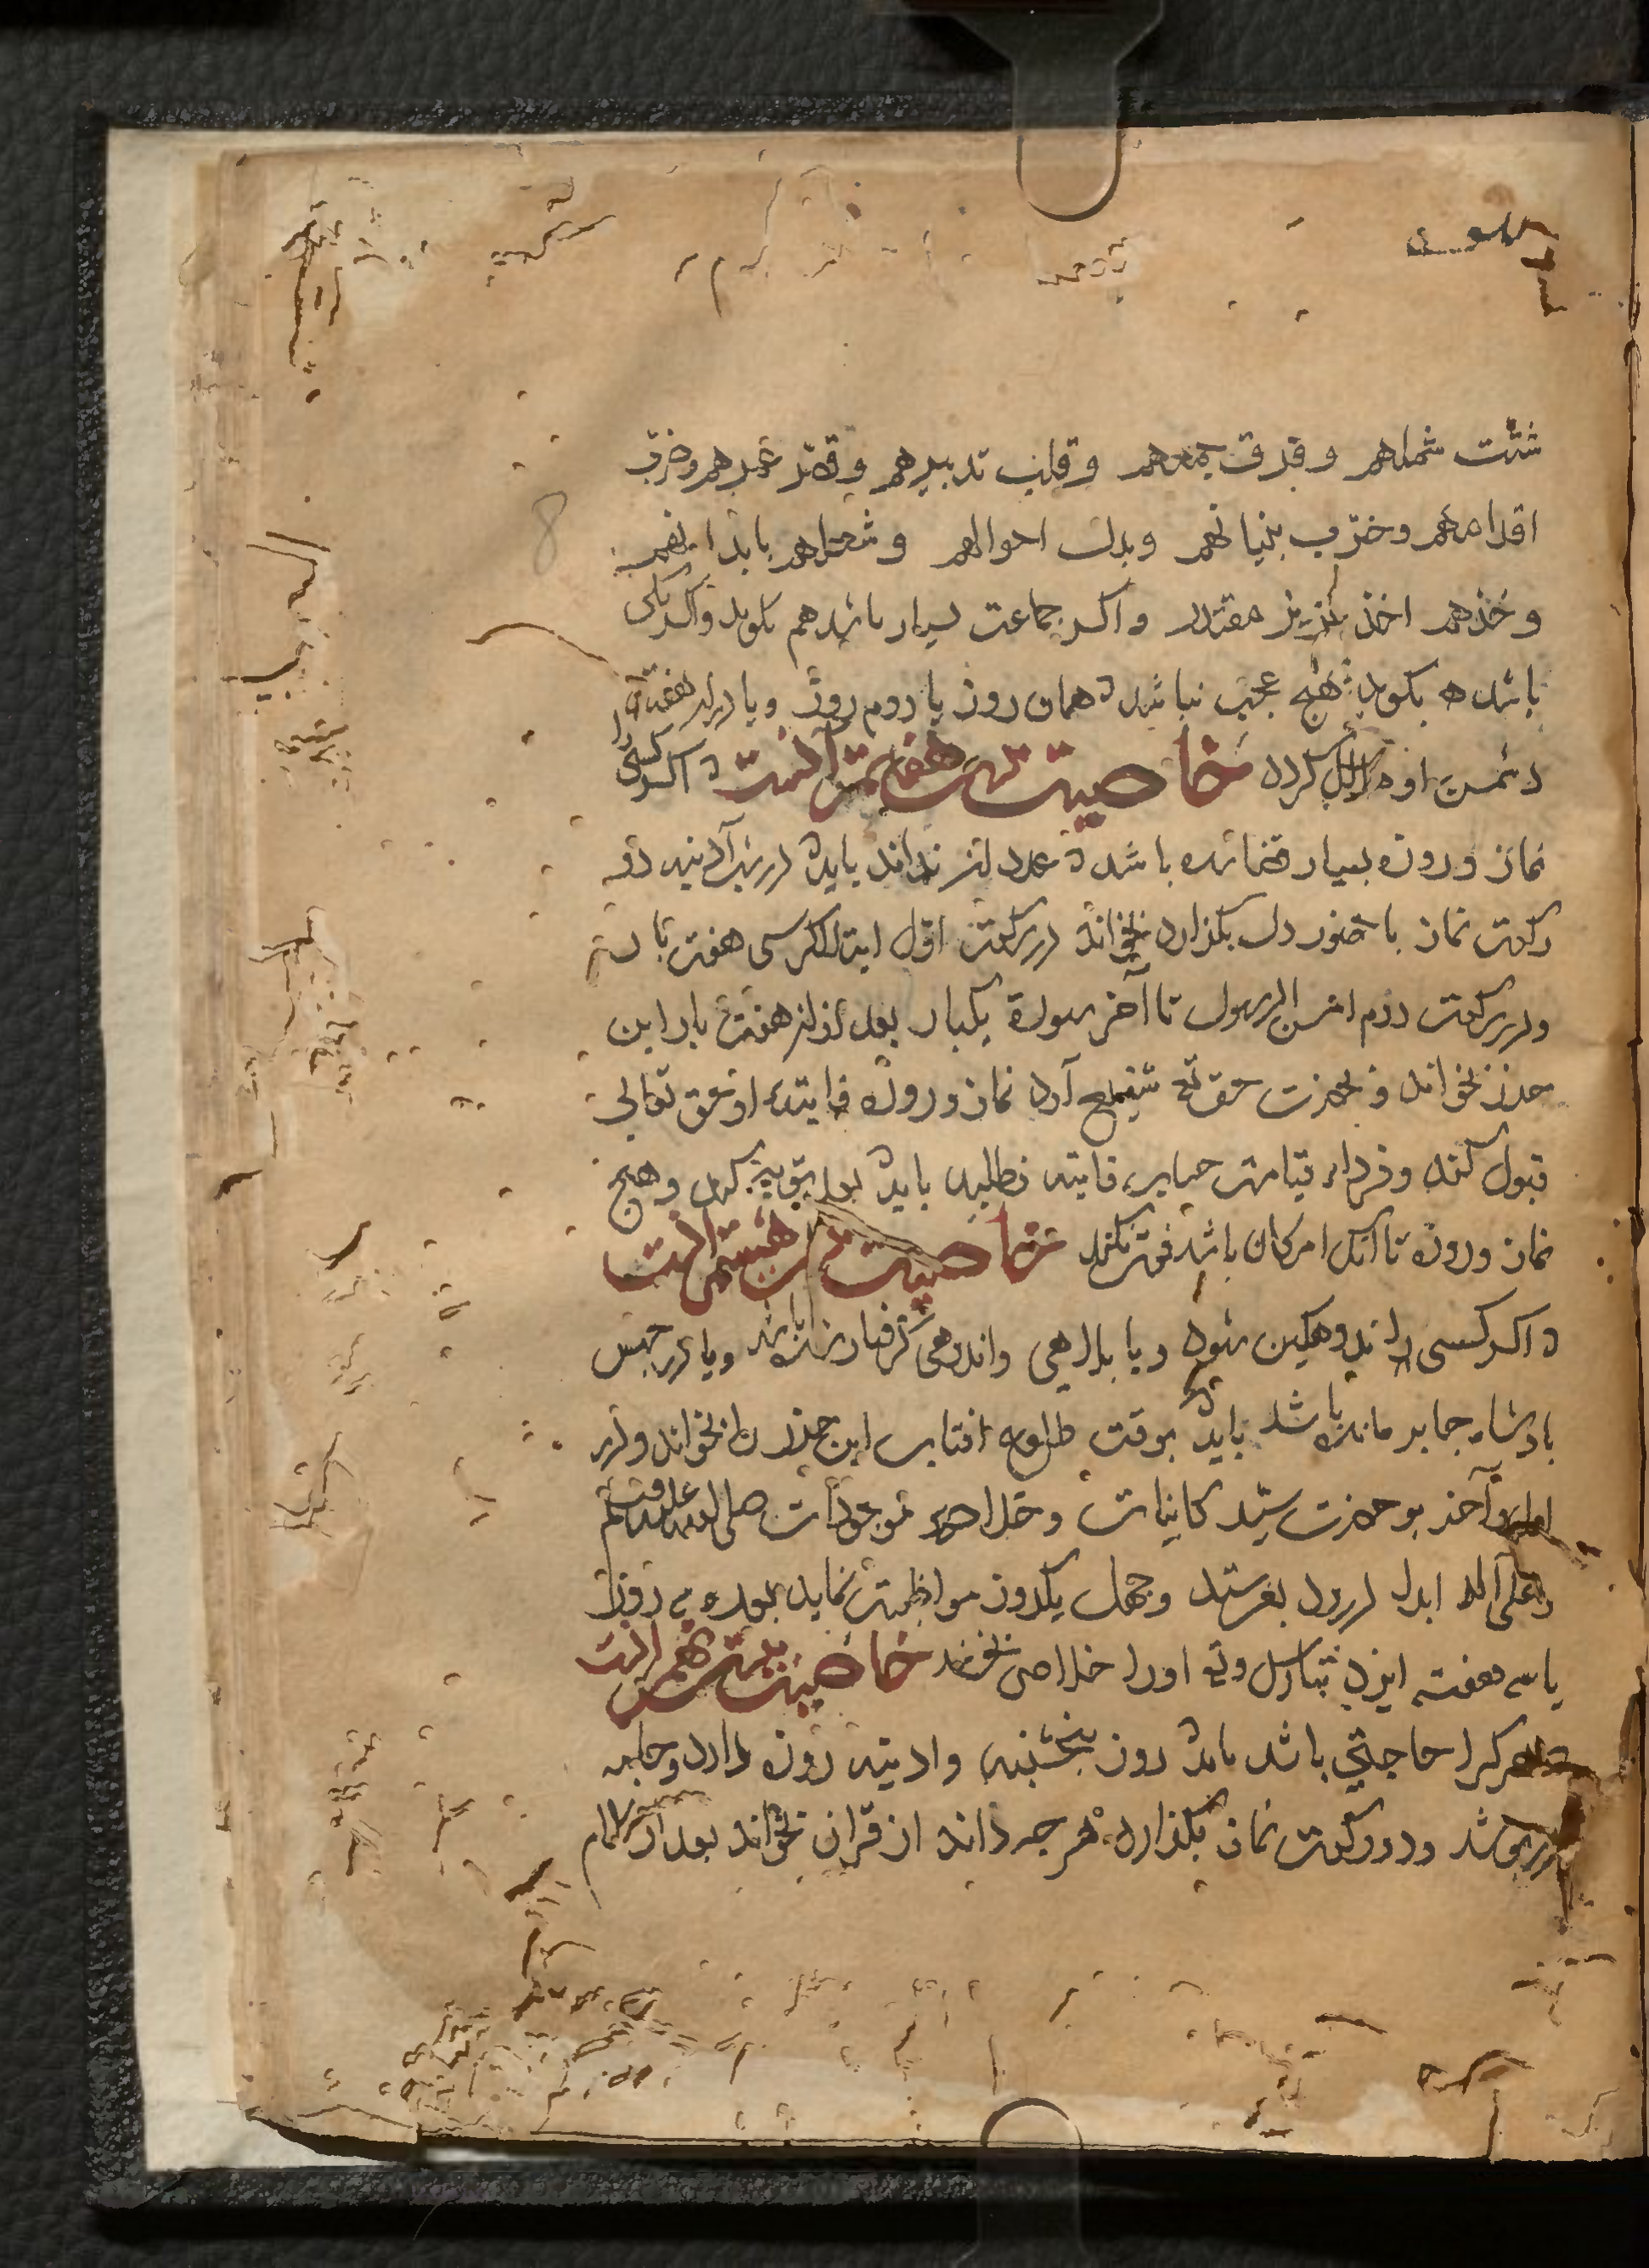 شتّت شملهم و فرق جمعهم و قلب تدبيرهم و قصّر عمرهم و خرّب
اقدامهم و خرّب بنيانهم و بدل احوالهم و شغلهم بابدانهم
و خذهم اخذ عزيز مقتدر و اكر جماعت بسيار باشد هم بكويد و اكر يكى
باشد هم بكويد هيچ عجب نباشد كه همان روز يا دوم روز و يا در هفته
دشمن او هلاك كردد خاصيت هفتم آنست كه اكر كسى را
نماز و روزه بسيار قضا شده باشد كه عدد آنرا نداند بايد كه در شب آدينه دو
ركعت نماز با حضور دل بكذارد بخواند در ركعت اوّل اية الكرسى هفت بار
و در ركعت دوم امن الرسول تا آخر سورة يكبار بعد از آن هفت بار اين
حرز بخواند و بحضرت حق تع شفيع آرد نماز و روزه فايته او حق تعالى
قبول كند و فرداء قيامت فايته نطلبد بايد كه توبه كند و هيچ
نماز و روزه تا آنك امكان باشد فوت نكند خاصيت هشتم آنست
كه اكر كسى اندوهكين شود و يا بالمى و اندوهى كرفتار شده باشد و يا در حبس
بادشاه جابر مانده باشد بايد كه بوقت طلوع افتاب اين حرز را بخواند و در
اول و آخر بر حضرت سيّد كاينات و خلاصه موجودات صلى الله عليه و سلم
و على آله ابدا درود بفرستد و چهل يكروز مواظبت نمايد بعد سه روز
يا سه هفته ايزد تبارك و تع او را خلاصى بخشد خاصيت نهم آنست
هر كرا حاجتى باشد بايد كه روز پنجشنبه و ادينه روزه دارد و جامه
در پوشد و دو ركعت نماز بكذارد هر چه داند از قران بخواند بعد از سلام